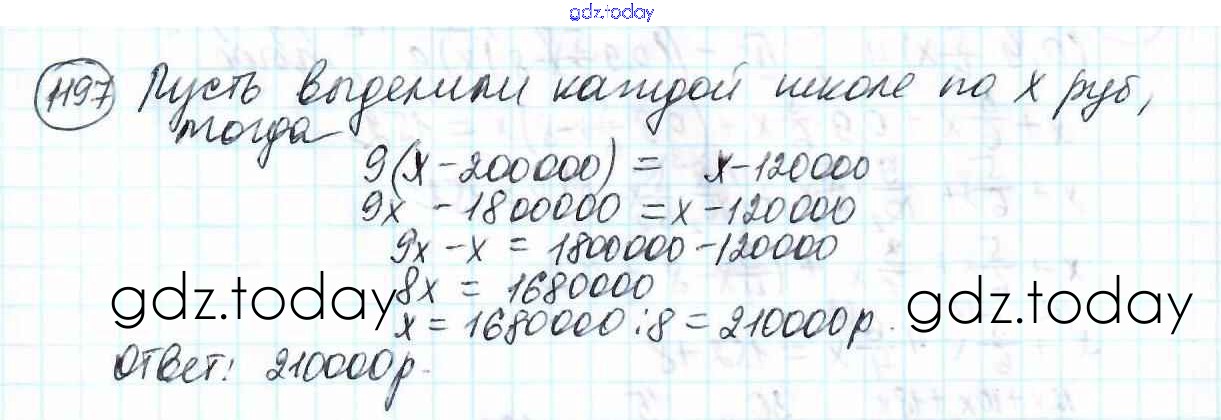 gdz.today
1197 Пусть выделили каждой школе по x руб,
тогда
9(x-200000) = x-120000
9x - 1800000 = x-120000
9x - x = 1800000-120000
8x = 1680000
gdz.today gdz.today
x = 1680000:8 = 210000р.
Ответ: 210000р.